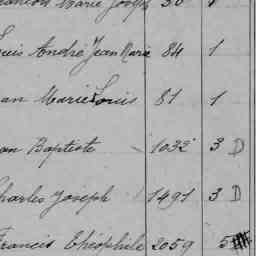 Marie Joseph 30 1
Louis André Jean Marie 84 1
Jean Marie Louis 81 1
Jean Baptiste 1032 3 D
Charles Joseph 1491 3 D
Francis Théophile 2059 5